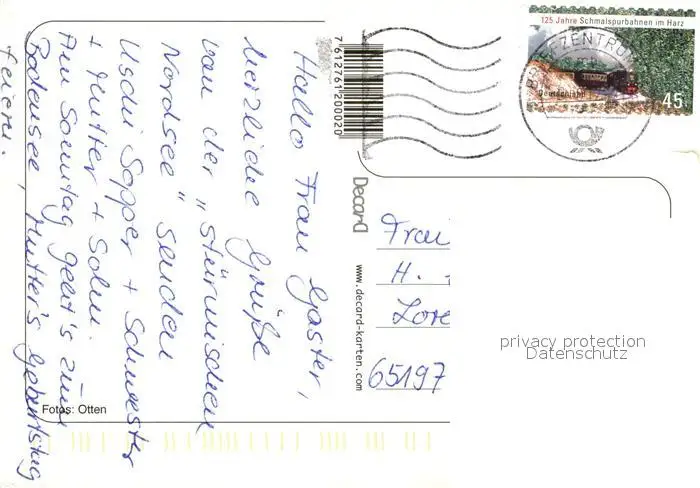 Hallo Frau Gaster,
herzliche Grüße
von der „stürmischen
Nordsee" senden
Uschi Sopper + Schwester
+ Mutter + Sohn.
Am Sonntag geht's zum
Bodensee, Mutter's Geburtstag
feiern.
Fotos: Otten
7612761200020
Decard
www.decard-karten.com
125 Jahre Schmalspurbahnen im Harz
Deutschland
45
BRIEFZENTRUM
Frau
H.
Lore
65197
privacy protection
Datenschutz